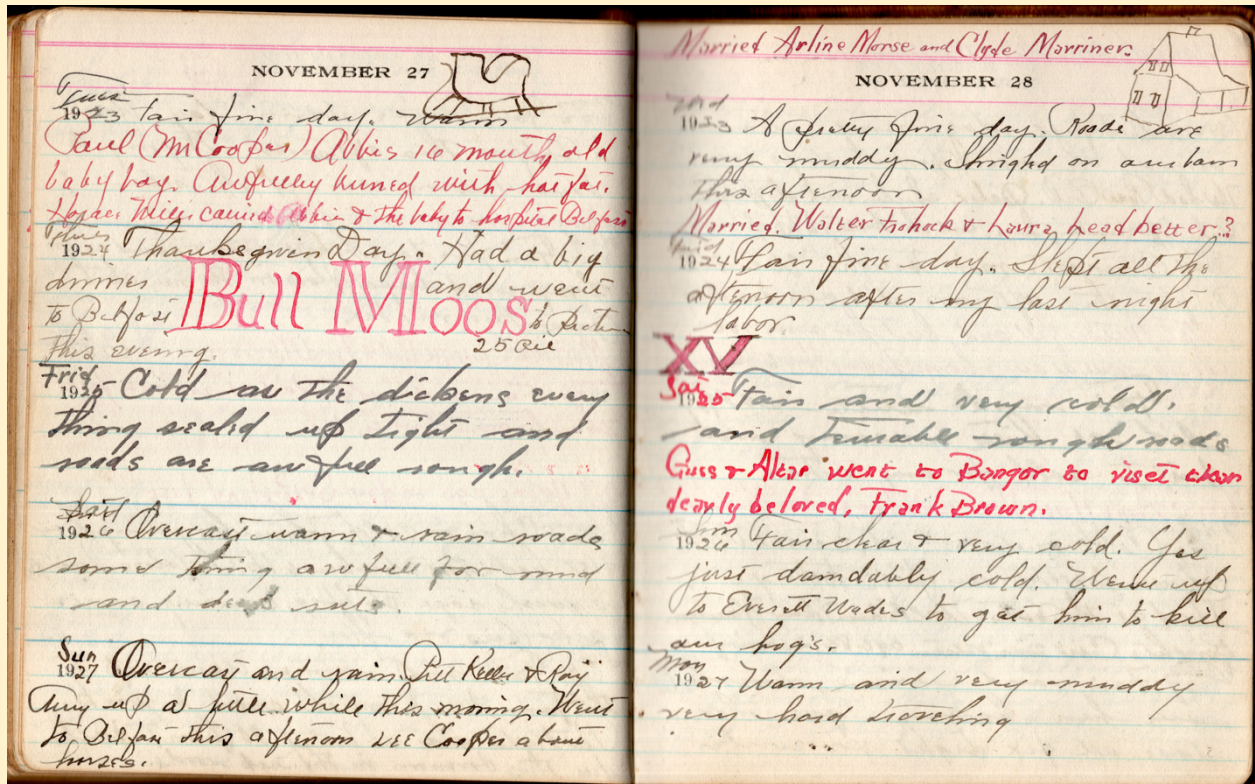 NOVEMBER 27
Tues
1923 Fair fine day. Warm
Paul (M Cooper) Abbie 16 month old
baby boy. Awfully burned with hot fat.
Horace carried Abbie & the baby to hospital Belfast
1924 Thanksgivin Day. Had a big
dinner and went
Bull Moos
to Belfast to
25 Oil
this evening.
Frid
1925 Cold as the dickens every
thing sealed up tight and
roads are awfull rough.
Sat
1926 Overcast warm & rain roads
some thing awfull for mud
and deep ruts.
Sun
1927 Overcast and rain. Keller & Roy
up a little while this morning. Went
to Belfast this afternoon see Cooper about
horses.
Married Arline Morse and Clyde Marriner.
NOVEMBER 28
1923 A pretty fine day. Roads are
very muddy. Shinghd on our barn
this afternoon
Married. Walter & Laura Leadbetter.?
1924 Fair fine day. Slept all the
afternoon after my last night
labor.
XV
Sat
1925 Fair and very cold.
and rough roads
Guss & Altar went to Bangor to viset
dearly beloved, Frank Brown.
Sun
1926 Fair clear & very cold. Yes
just damdably cold. Went up
to Everett Wades to get him to kill
our hogs.
Mon
1927 Warm and very muddy
very hard traveling